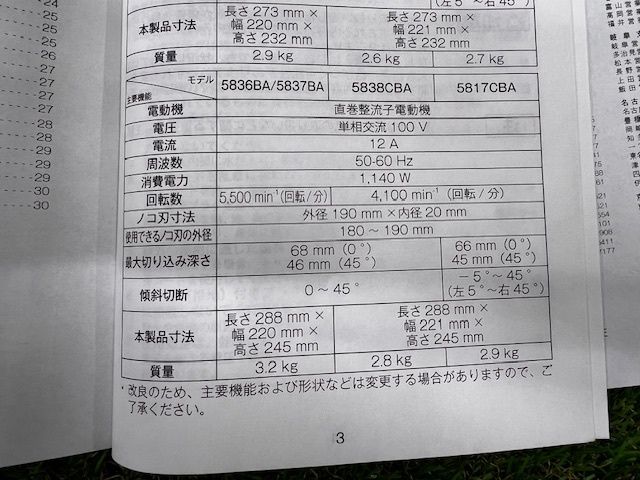 24
25
25
26
27
27
27
28
28
29
29
30
30
(左5°〜右45°)
本製品寸法 長さ273 mm× 幅220 mm× 高さ232 mm 長さ273 mm× 幅221 mm× 高さ232 mm
質量 2.9 kg 2.6 kg 2.7 kg
モデル 主要機能 5836BA/5837BA 5838CBA 5817CBA
電動機 直巻整流子電動機
電圧 単相交流100 V
電流 12 A
周波数 50-60 Hz
消費電力 1,140 W
回転数 5,500 min⁻¹(回転/分) 4,100 min⁻¹(回転/分)
ノコ刃寸法 外径190 mm×内径20 mm
使用できるノコ刃の外径 180〜190 mm
最大切り込み深さ 68 mm (0°) 46 mm (45°) 66 mm (0°) 45 mm (45°)
傾斜切断 0〜45° −5°〜45° (左5°〜右45°)
本製品寸法 長さ288 mm× 幅220 mm× 高さ245 mm 長さ288 mm× 幅221 mm× 高さ245 mm
質量 3.2 kg 2.8 kg 2.9 kg
・改良のため、主要機能および形状などは変更する場合がありますので、ご
了承ください。
3
富山営業
高岡営
福井営
岐阜支
岐阜営
多治見
松本営
長野営
上田営
飯田営
名古
名古
豊橋
岡崎
知
一
東
津
四
伊